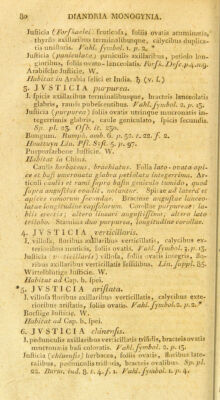 80 DIANDRIA MONOGYNIA.
Justicia (Forskaolei) fruticosa, foliis ovatis acuminatis,
thyrsis axillaribus terminalibusque, calycibus duplica-
tis unifloris. Vahl. symbol. 1. p. 2. *
Justicia (paniculata) paniculis axillaribus, petiolo lon-
gioribus, foliis ovato-lanceolatis. Forsk. Desc. p. 4. n. 9.
Arabische Justicie. W.
Habitat in Arabia felici et India. ♄ (v. f.)
3. JVSTICIA purpurea.
J. spicis axillaribus terminalibusque, bracteis lanceolatis
glabris, ramis pubescentibus. Vahl. symbol. 2. p. 15.
Justicia (purpurea) foliis ovatis utrinque mucronatis in-
tegerrimis glabris, caule geniculato, spicis secundis.
Sp. pl. 23. Osb. it. 230.
Bungum. Rumph. amb. 6. p. 52. t. 22. f. 2.
Houttuyn Lin. Pfl. Syst. 5. p. 97.
Purpurfarbene Justicie. W.
Habitat in China.
Caulis herbaceus, brachiatus. Folia lato-ovata apice
et basi emeroneta glabra petiolata integerrima. Ar-
ticuli caulis et rami supra basin geniculo tumido, quod
supra angustius evadit, notantur. Spicae ad latera et
apices ramorum secundae. Bracteae angustae lanceo-
latae longitudine capsularum. Corollae purpureae: la-
biis erectis; altero lineari angustissimo; altero lato
trilobo. Stamina duo purpurea, longitudine corollae.
4. JVSTICIA verticillaris.
J. villosa, floribus axillaribus verticillatis, calycibus ex-
terioribus muticis, foliis ovatis. Vahl. symbol. 2. p. 15.
Justicia (verticillaris) villosa, foliis ovatis integris, flo-
ribus axillaribus verticillatis sessilibus. Lin. suppl. 85.
Wirtelblütige Justicie. W.
Habitat ad Cap. b. spei.
* 5. JVSTICIA aristata.
J. villosa floribus axillaribus verticillatis, calycibus exte-
rioribus aristatis, foliis ovatis. Vahl. symbol. 2. p. 2. *
Borstige Justicie. W.
Habitat ad Cap. b. spei.
6. JVSTICIA chinensis.
J. pedunculis axillaribus verticillatis trifidis, bracteis ovatis
mucronatis basi coloratis. Vahl. symbol. 2. p. 15.
Justicia (chinensis) herbacea, foliis ovatis, floribus late-
ralibus, pedunculis trifloris, bracteis ovalibus. Sp. pl.
22. Burm. ind. 8. t. 4. f. 1. Vahl. symbol. 1. p. 4.